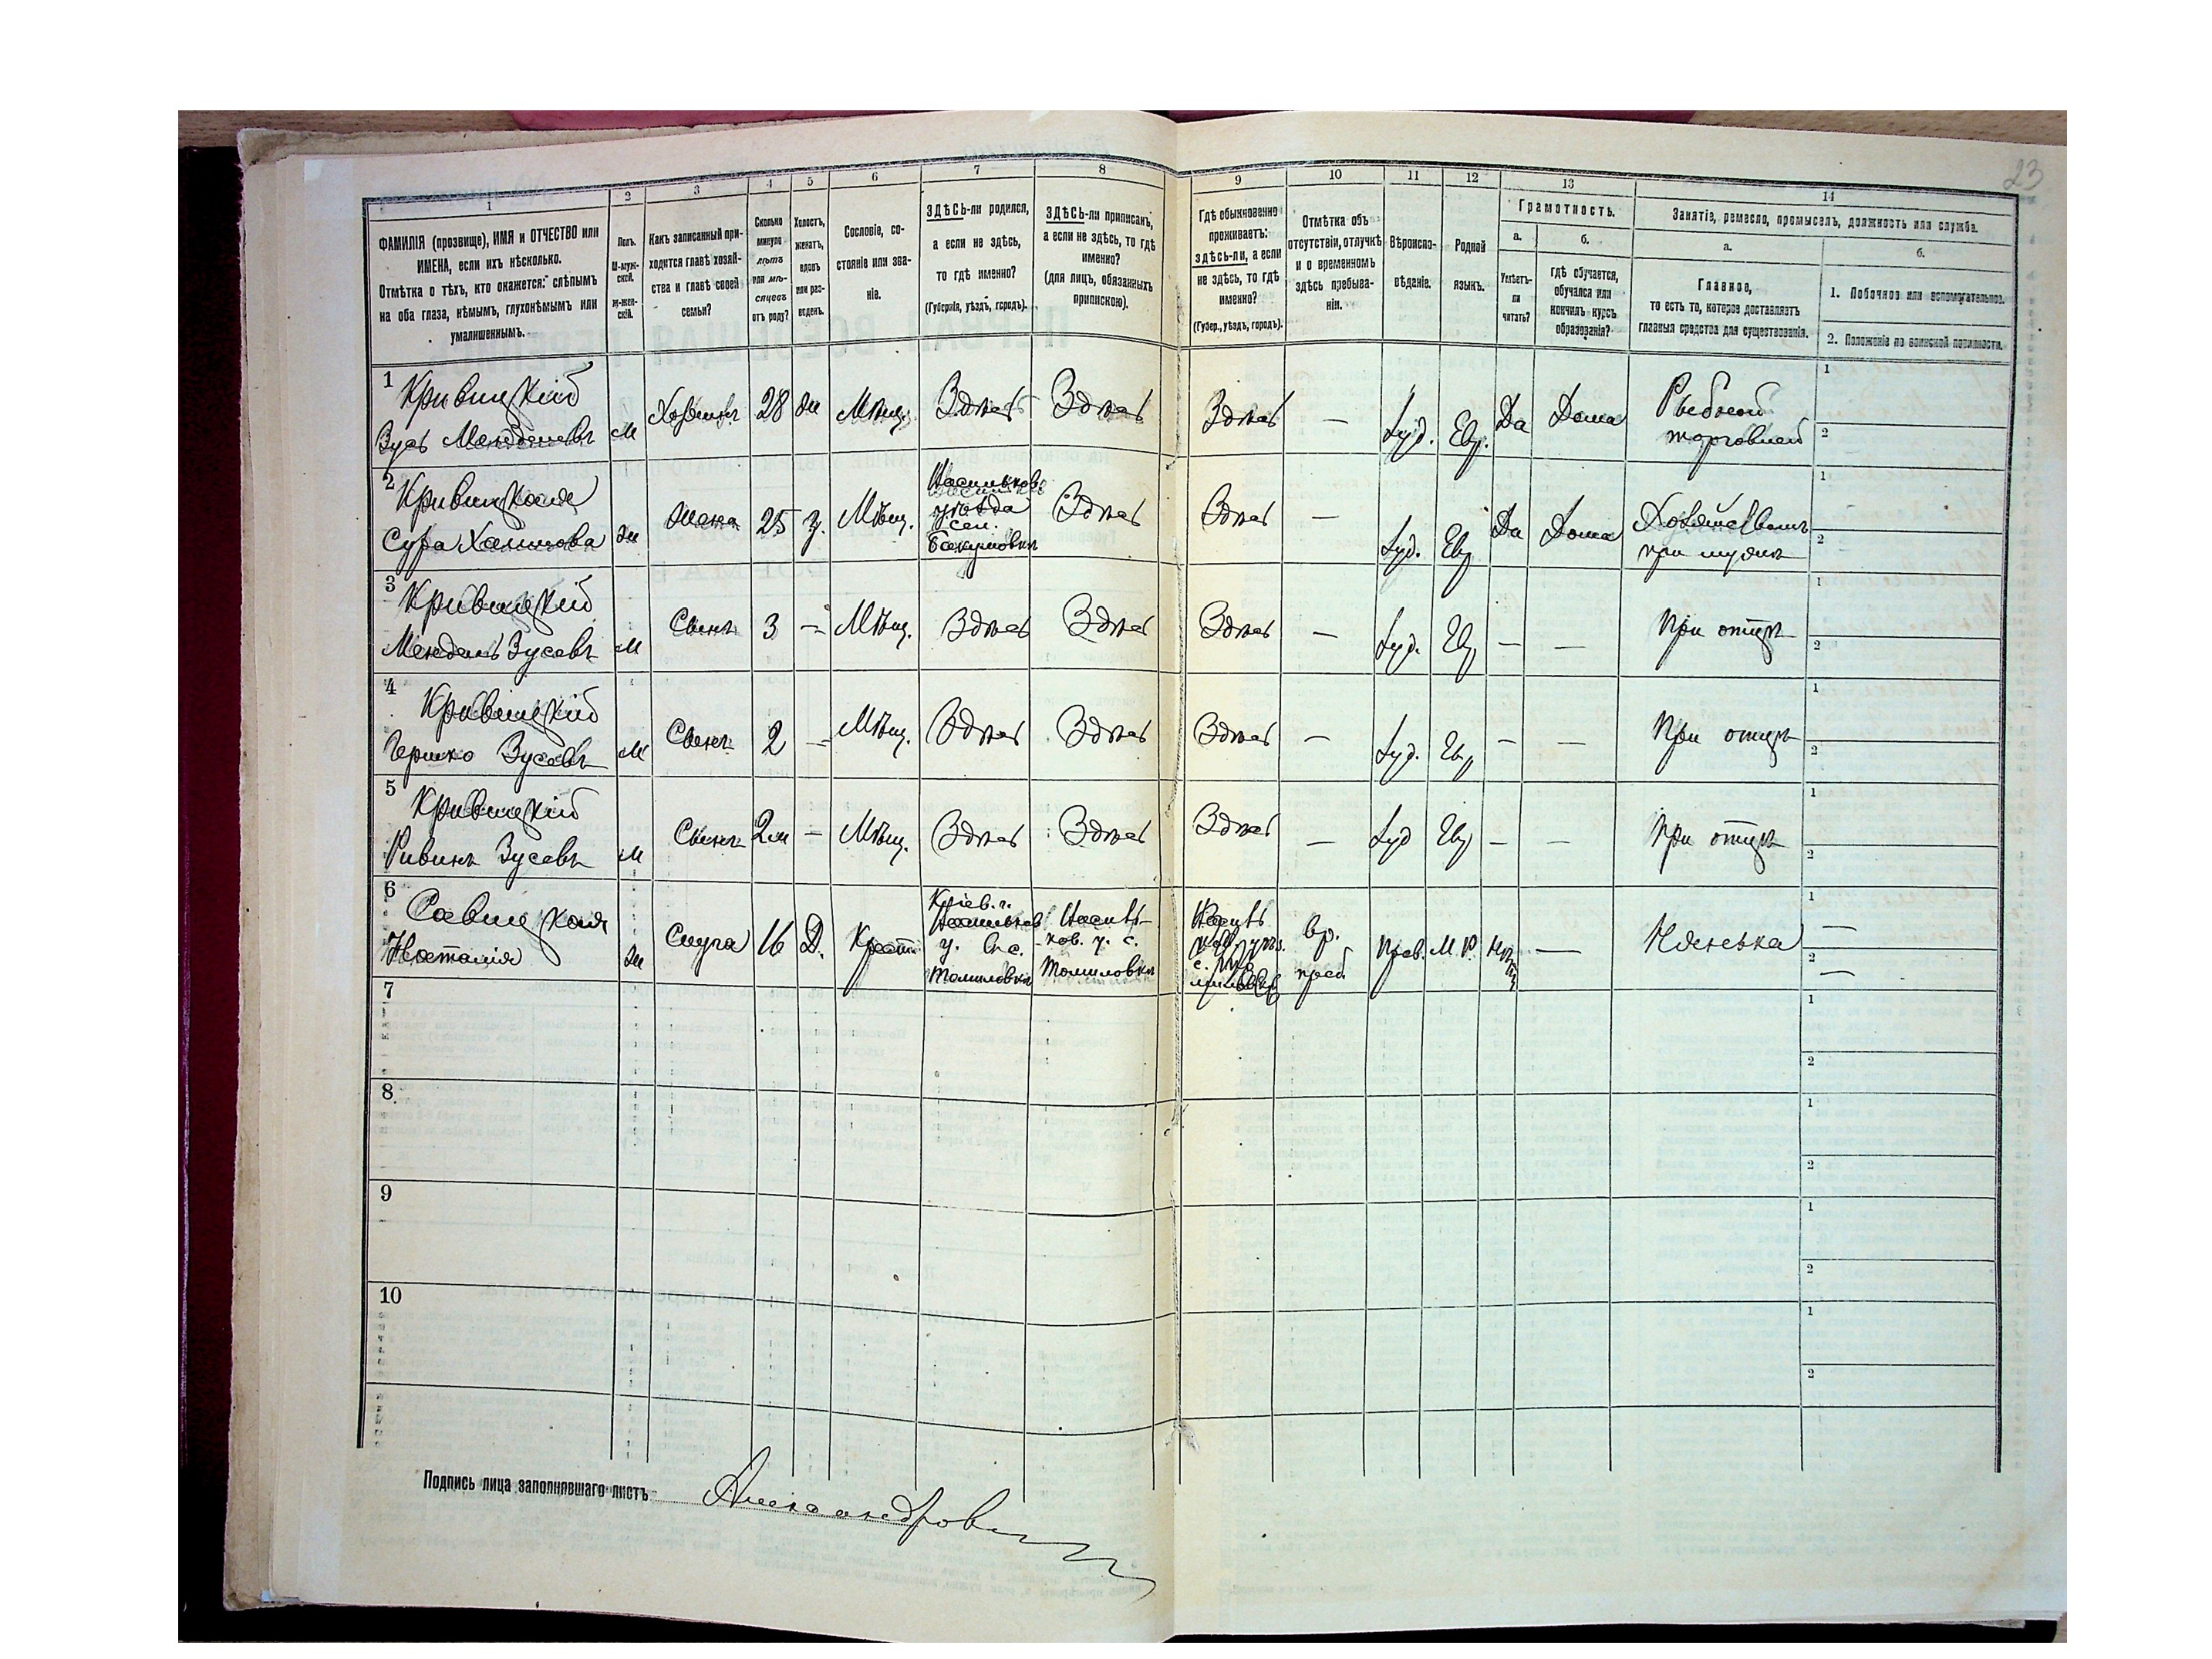 23
1
2
3
4
5
6
7
8
9
10
11
12
13
14
ФАМИЛІЯ (прозвище), ИМЯ и ОТЧЕСТВО или
ИМЕНА, если ихъ нѣсколько.
Отмѣтка о тѣхъ, кто окажется: слѣпымъ
на оба глаза, нѣмымъ, глухонѣмымъ или
умалишеннымъ.
Полъ.
М-муж-
ской.
Ж-жен-
скій.
Какъ записанный при-
ходится главѣ хозяй-
ства и главѣ своей
семьи?
Сколько
минуло
лѣтъ
или мѣ-
сяцевъ
отъ роду?
Холостъ,
женатъ,
вдовъ
или раз-
веденъ.
Сословіе, со-
стояніе или зва-
ніе.
ЗДѢСЬ-ли родился,
а если не здѣсь,
то гдѣ именно?
(Губернія, уѣздъ, городъ).
ЗДѢСЬ-ли приписанъ,
а если не здѣсь, то гдѣ
именно?
(для лицъ, обязанныхъ
припискою).
Гдѣ обыкновенно
проживаетъ:
здѣсь-ли, а если
не здѣсь, то гдѣ
именно?
(Губер., уѣздъ, городъ).
Отмѣтка объ
отсутствіи, отлучкѣ
и о временномъ
здѣсь пребыва-
ніи.
Вѣроиспо-
вѣданіе.
Родной
языкъ.
Грамотность.
а.
Умѣетъ-
ли
читать?
б.
гдѣ обучается,
обучался или
кончилъ курсъ
образованія?
Занятіе, ремесло, промыселъ, должность или служба.
а.
Главное,
то есть то, которое доставляетъ
главныя средства для существованія.
б.
1. Побочное или вспомогательное.
2. Положеніе по воинской повинности.
1 Кривицкій
Зусь Менделевъ М Хозяинъ 28 Ж Мѣщ. Здѣсь Здѣсь Здѣсь — Іуд. Евр. Да Дома Рыбной
торговлей
1
2
2 Кривицкая
Сура Хаимова Ж Жена 25 З. Мѣщ. Васильков.
уѣзда
сел.
Здѣсь Здѣсь — Іуд. Евр Да Дома Хозяйством
при мужѣ
1
2
3 Кривицкій
Мендель Зусевъ М Сынъ 3 — Мѣщ. Здѣсь Здѣсь Здѣсь — Іуд. Евр — — При отцѣ
1
2
4 Кривицкій
Гершко Зусевъ М Сынъ 2 — Мѣщ. Здѣсь Здѣсь Здѣсь — Іуд. Евр — — При отцѣ
1
2
5 Кривицкій
Рувинъ Зусевъ М Сынъ 2м — Мѣщ. Здѣсь Здѣсь Здѣсь — Іуд Евр — — При отцѣ
1
2
6 Савицкая
Наталія Ж Слуга 16 Д. Крест.
Кіев. г.
Васильков
у. с.
Томиловки
Василь-
ков. у. с.
Томиловки
вр.
преб
Прав. М. Р. Нѣтъ — Нянька
1 —
2 —
7
1
2
8
1
2
9
1
2
10
1
2
Подпись лица заполнявшаго листъ